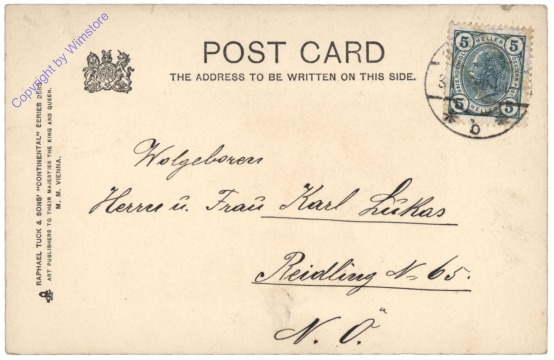 POST CARD
THE ADDRESS TO BE WRITTEN ON THIS SIDE.
5 HELLER 5
5 HELLER 5
b
Wolgeboren
Herrn u. Frau Karl Lukas
Reidling No 65.
N. Ö.
RAPHAEL TUCK & SONS' "CONTINENTAL" SERIES
ART PUBLISHERS TO THEIR MAJESTIES THE KING AND QUEEN.
M. M. VIENNA.
Copyright by Wimstore